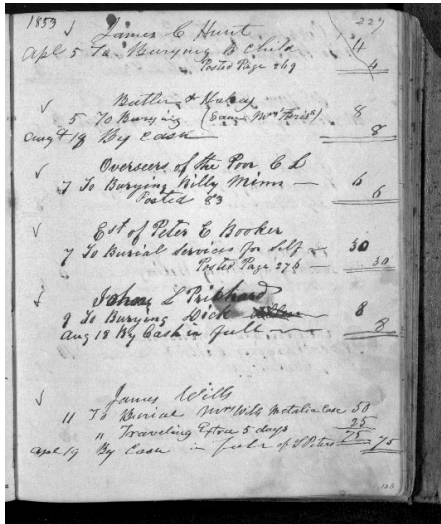 1853 James C Hunt 227
Apl 5 To Burying C Child 4
Posted Page 269 4
Butler &
5 To Burying (Saml Mrs) 8
Augt 18 By Cash 8
Overseers of the Poor C L
7 To Burying Billy Mimm 6
Posted 83 6
Est of Peter C Booker
7 To Burial Services for Self 30
Posted Page 276 30
John L Prichard
9 To Burying Dick 8
Aug 18 By Cash in full 8
James Wills
11 To Burial Mrs Wills Metalic Case 50
" Traveling Extra 5 days 25
75
Apl 19 By Cash in full of 75